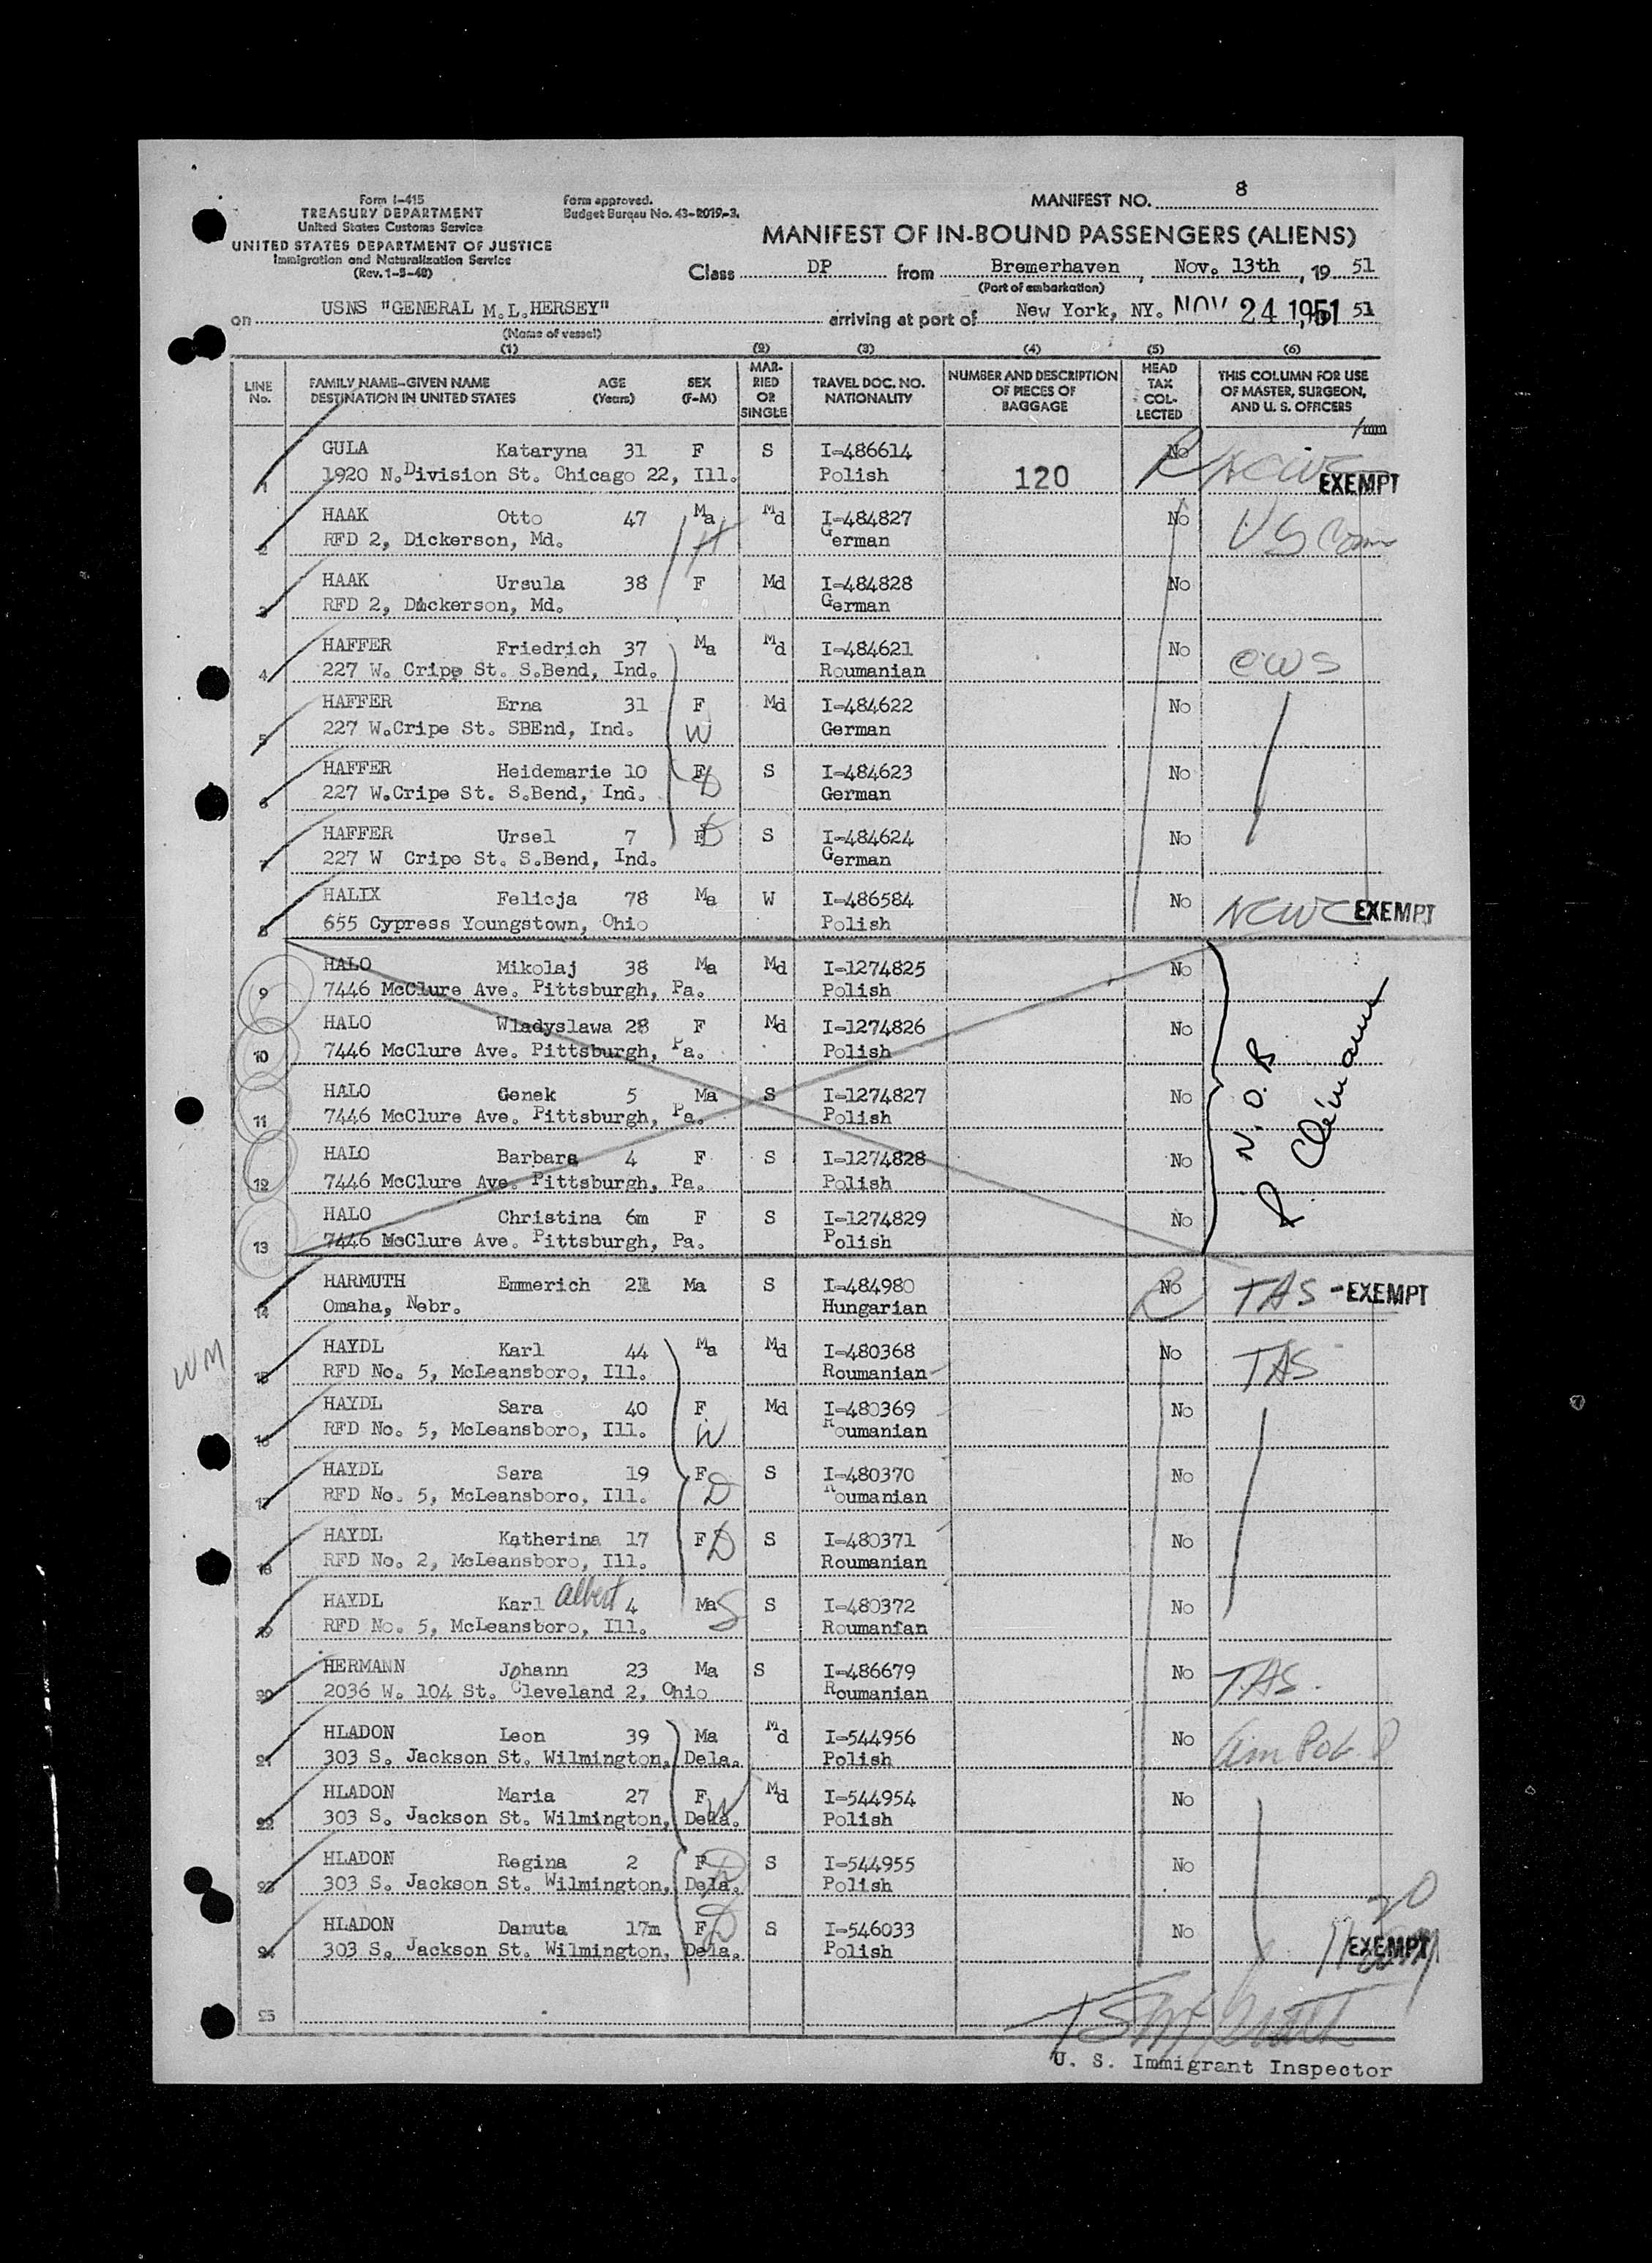 Form I-415
TREASURY DEPARTMENT
United States Customs Service
UNITED STATES DEPARTMENT OF JUSTICE
Immigration and Naturalization Service
(Rev. 1-3-49)
Form approved.
Budget Bureau No. 43-R019-3.
MANIFEST NO. 8
MANIFEST OF IN-BOUND PASSENGERS (ALIENS)
Class DP from Bremerhaven, Nov. 13th, 19 51
(Port of embarkation)
on USNS "GENERAL M.L.HERSEY" arriving at port of New York, NY. NOV 24 1951 51
(Name of vessel)
(1) (2) (3) (4) (5) (6)
LINE No. FAMILY NAME—GIVEN NAME DESTINATION IN UNITED STATES AGE (Years) SEX (F-M) MARRIED OR SINGLE TRAVEL DOC. NO. NATIONALITY NUMBER AND DESCRIPTION OF PIECES OF BAGGAGE HEAD TAX COLLECTED THIS COLUMN FOR USE OF MASTER, SURGEON, AND U. S. OFFICERS
/mm
GULA Kataryna 31 F S I-486614 No R NCWC
1 1920 N.Division St. Chicago 22, Ill. Polish 120 EXEMPT
HAAK Otto 47 Ma Md I-484827 No US Com
2 RFD 2, Dickerson, Md. H German
HAAK Ursula 38 F Md I-484828 No
3 RFD 2, Dickerson, Md. German
HAFFER Friedrich 37 Ma Md I-484621 No CWS
4 227 W. Cripe St. S.Bend, Ind. Roumanian
HAFFER Erna 31 F Md I-484622 No
5 227 W.Cripe St. SBEnd, Ind. W German
HAFFER Heidemarie 10 F D S I-484623 No
6 227 W.Cripe St. S.Bend, Ind. German
HAFFER Ursel 7 F D S I-484624 No
7 227 W Cripe St. S.Bend, Ind. German
HALIX Felicja 78 Ma W I-486584 No NCWC EXEMPT
8 655 Cypress Youngstown, Ohio Polish
HALO Mikolaj 38 Ma Md I-1274825 No
9 7446 McClure Ave. Pittsburgh, Pa. Polish
HALO Wladyslawa 28 F Md I-1274826 No
10 7446 McClure Ave. Pittsburgh, Pa. Polish
N.O.B
HALO Genek 5 Ma S I-1274827 No
11 7446 McClure Ave. Pittsburgh, Pa. Polish
HALO Barbara 4 F S I-1274828 No
12 7446 McClure Ave. Pittsburgh, Pa. Polish
HALO Christina 6m F S I-1274829 No
13 7446 McClure Ave. Pittsburgh, Pa. Polish
HARMUTH Emmerich 21 Ma S I-484980 No R TAS - EXEMPT
14 Omaha, Nebr. Hungarian
HAYDL Karl 44 Ma Md I-480368 No TAS
WM 15 RFD No. 5, McLeansboro, Ill. Roumanian
HAYDL Sara 40 F Md I-480369 No
16 RFD No. 5, McLeansboro, Ill. W Roumanian
HAYDL Sara 19 F D S I-480370 No
17 RFD No. 5, McLeansboro, Ill. Roumanian
HAYDL Katherina 17 F D S I-480371 No
18 RFD No. 2, McLeansboro, Ill. Roumanian
HAYDL Karl albert 4 Ma S S I-480372 No
19 RFD No. 5, McLeansboro, Ill. Roumanian
HERMANN Johann 23 Ma S I-486679 No TAS.
20 2036 W. 104 St. Cleveland 2, Ohio Roumanian
HLADON Leon 39 Ma Md I-544956 No Am Pol
21 303 S. Jackson St. Wilmington, Dela. Polish
HLADON Maria 27 F W Md I-544954 No
22 303 S. Jackson St. Wilmington, Dela. Polish
HLADON Regina 2 F D S I-544955 No
23 303 S. Jackson St. Wilmington, Dela. Polish
HLADON Danuta 17m F D S I-546033 No
24 303 S. Jackson St. Wilmington, Dela. Polish EXEMPT
25
U. S. Immigrant Inspector